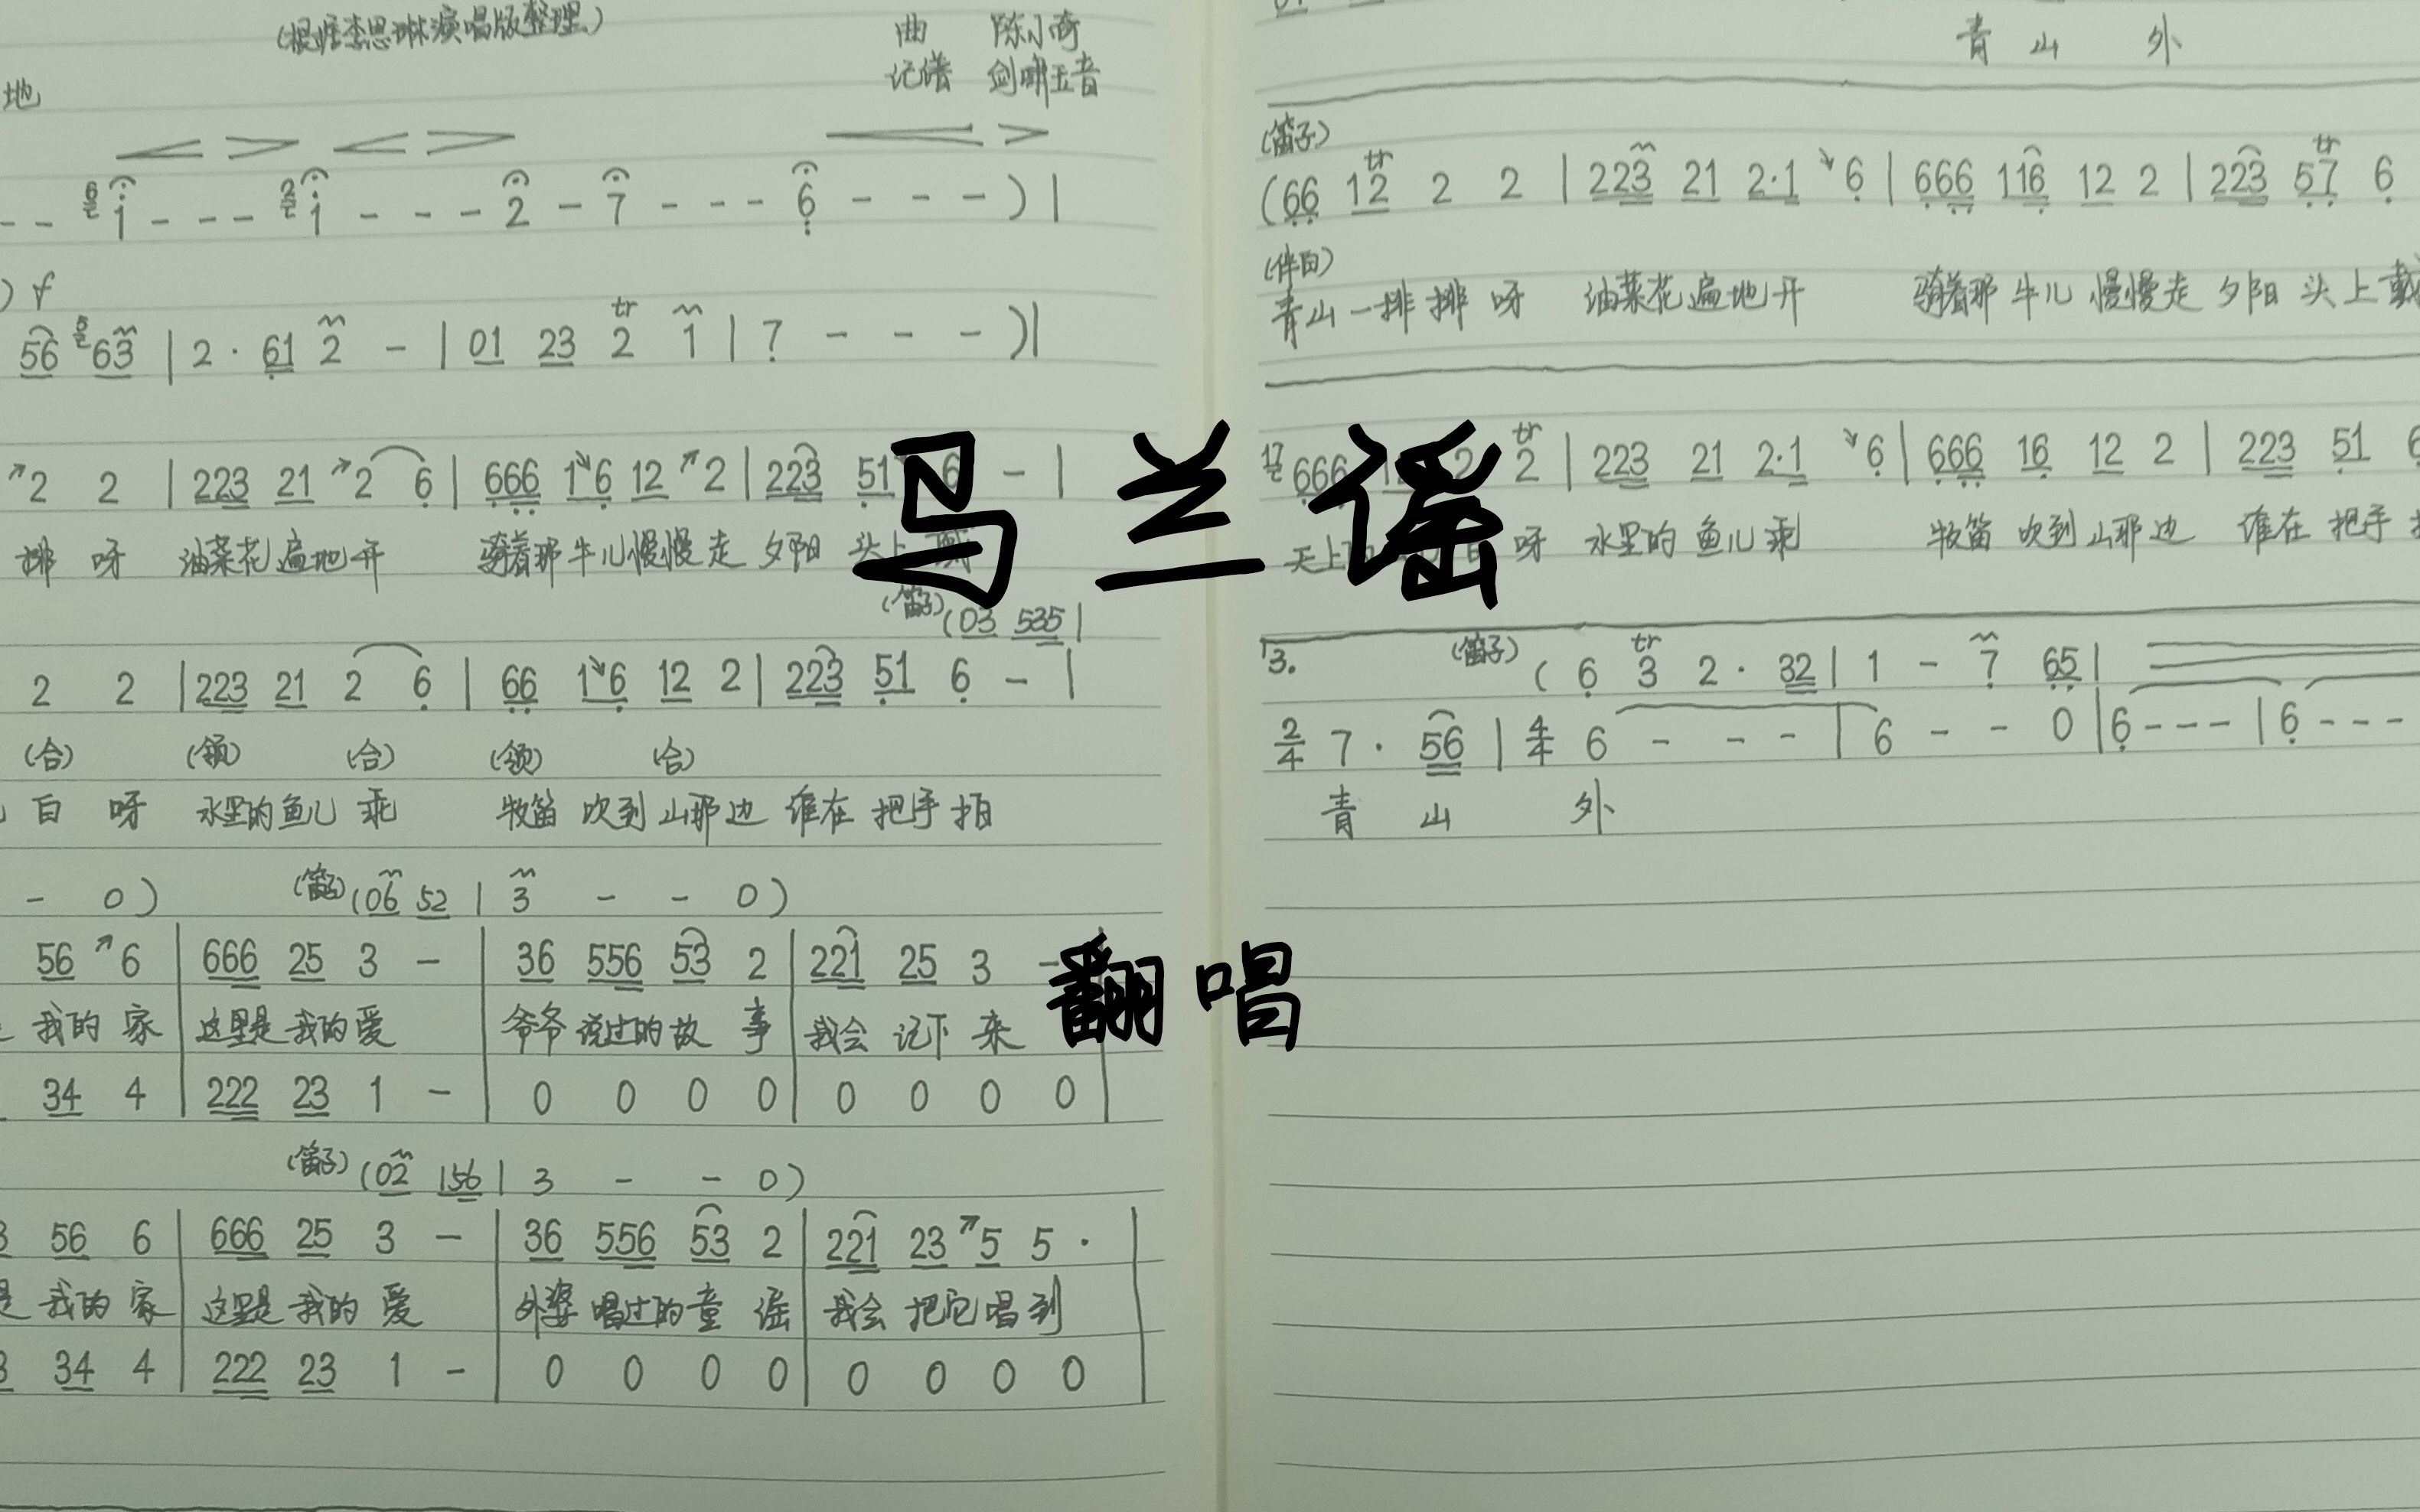 (根据李思琳演唱版整理)
曲 陈小奇
记谱 剑啸五音
地
- - 6 1 - - - 2 1 - - - 2 - 7 - - - 6 - - - ) |
) f
56 5 63 | 2 · 61 2 - | 01 23 tr 2 1 | 7 - - - ) |
2 2 | 223 21 2 6 | 666 16 12 2 | 223 51 6 - |
排 呀 油菜花遍地开 骑着那牛儿慢慢走 夕阳 头上戴
(笛子) (03 535 |
2 2 | 223 21 2 6 | 66 16 12 2 | 223 51 6 - |
(合) (领) (合) (领) (合)
白 呀 水里的鱼儿 乖 牧笛 吹到 山那边 谁在 把手 拍
- 0 ) (笛子) (06 52 | 3 - - 0 )
56 6 | 666 25 3 - | 36 556 53 2 | 221 25 3 -
我的 家 这里是 我的 爱 爷爷 说过的 故 事 我会 记下 来
34 4 | 222 23 1 - | 0 0 0 0 | 0 0 0 0 |
(笛子) (02 156 | 3 - - 0 )
3 56 6 | 666 25 3 - | 36 556 53 2 | 221 23 5 5 · |
是 我的 家 这里是 我的 爱 外婆 唱过的 童 谣 我会 把它 唱到
3 34 4 | 222 23 1 - | 0 0 0 0 | 0 0 0 0 |
青 山 外
(笛子)
(66 12 tr 2 2 | 223 21 2·1 6 | 666 116 12 2 | 223 57 tr 6
(伴白)
青山一排排 呀 油菜花遍地开 骑着那 牛儿 慢慢走 夕阳 头上戴
17 666 2 tr 2 | 223 21 2·1 6 | 666 16 12 2 | 223 51 6
天上 呀 水里的 鱼儿 乖 牧笛 吹到 山那边 谁在 把手
3. (笛子) ( 6 tr 3 2 · 32 | 1 - 7 65 |
2/4 7 · 56 | 4/4 6 - - - | 6 - - 0 | 6 - - - | 6 - - -
青 山 外
马兰谣
翻唱